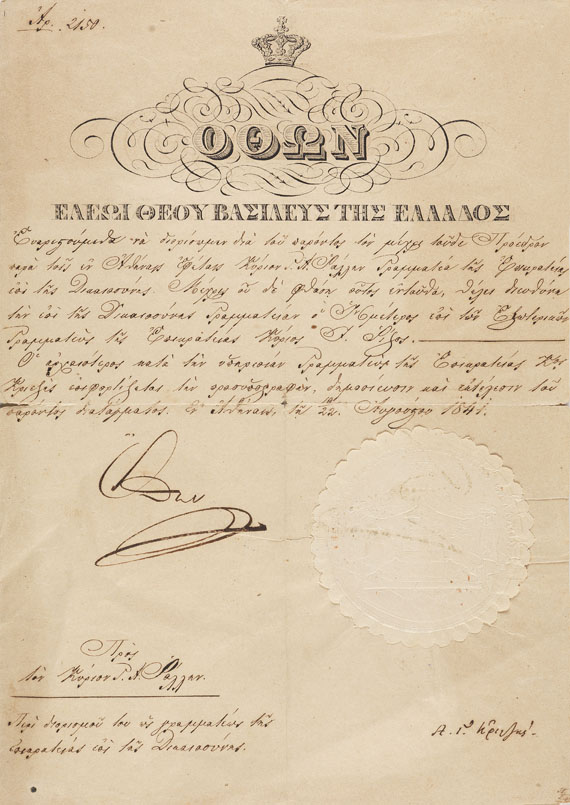 Ἀρ. 2150.
ΟΘΩΝ
ΕΛΕΩΙ ΘΕΟΥ ΒΑΣΙΛΕΥΣ ΤΗΣ ΕΛΛΑΔΟΣ
Εὐαρεστούμεθα νὰ διορίσωμεν διὰ τοῦ παρόντος τὸν μέχρι τοῦδε Πρόεδρον
παρὰ τοῖς ἐν Ἀθήναις Ἐφέταις Κύριον Γ. Α. Ράλλην Γραμματέα τῆς Ἐπικρατείας
ἐπὶ τῆς Δικαιοσύνης. Μέχρις οὗ δὲ φθάσῃ οὗτος ἐνταῦθα, θέλει διευθύνει
τὴν ἐπὶ τῆς Δικαιοσύνης Γραμματείαν ὁ Ἡμέτερος ἐπὶ τῶν Ἐξωτερικῶν
Γραμματεὺς τῆς Ἐπικρατείας Κύριος Ρίζος.
Ὁ ἀρχαιότερος κατὰ τὴν ὑπηρεσίαν Γραμματεὺς τῆς Ἐπικρατείας Κος
Κριεζῆς ἐπιφορτίζεται τὴν προσυπογραφήν, δημοσίευσιν καὶ ἐκτέλεσιν τοῦ
παρόντος διατάγματος. Ἐν Ἀθήναις, τῇ 22 Αὐγούστου 1841.
Ὄθων
Πρὸς
τὸν Κύριον Γ. Α. Ράλλην.
Περὶ διορισμοῦ του ὡς γραμματέως τῆς
Ἐπικρατείας ἐπὶ τῆς Δικαιοσύνης.
Α. Γ. Κριεζής.